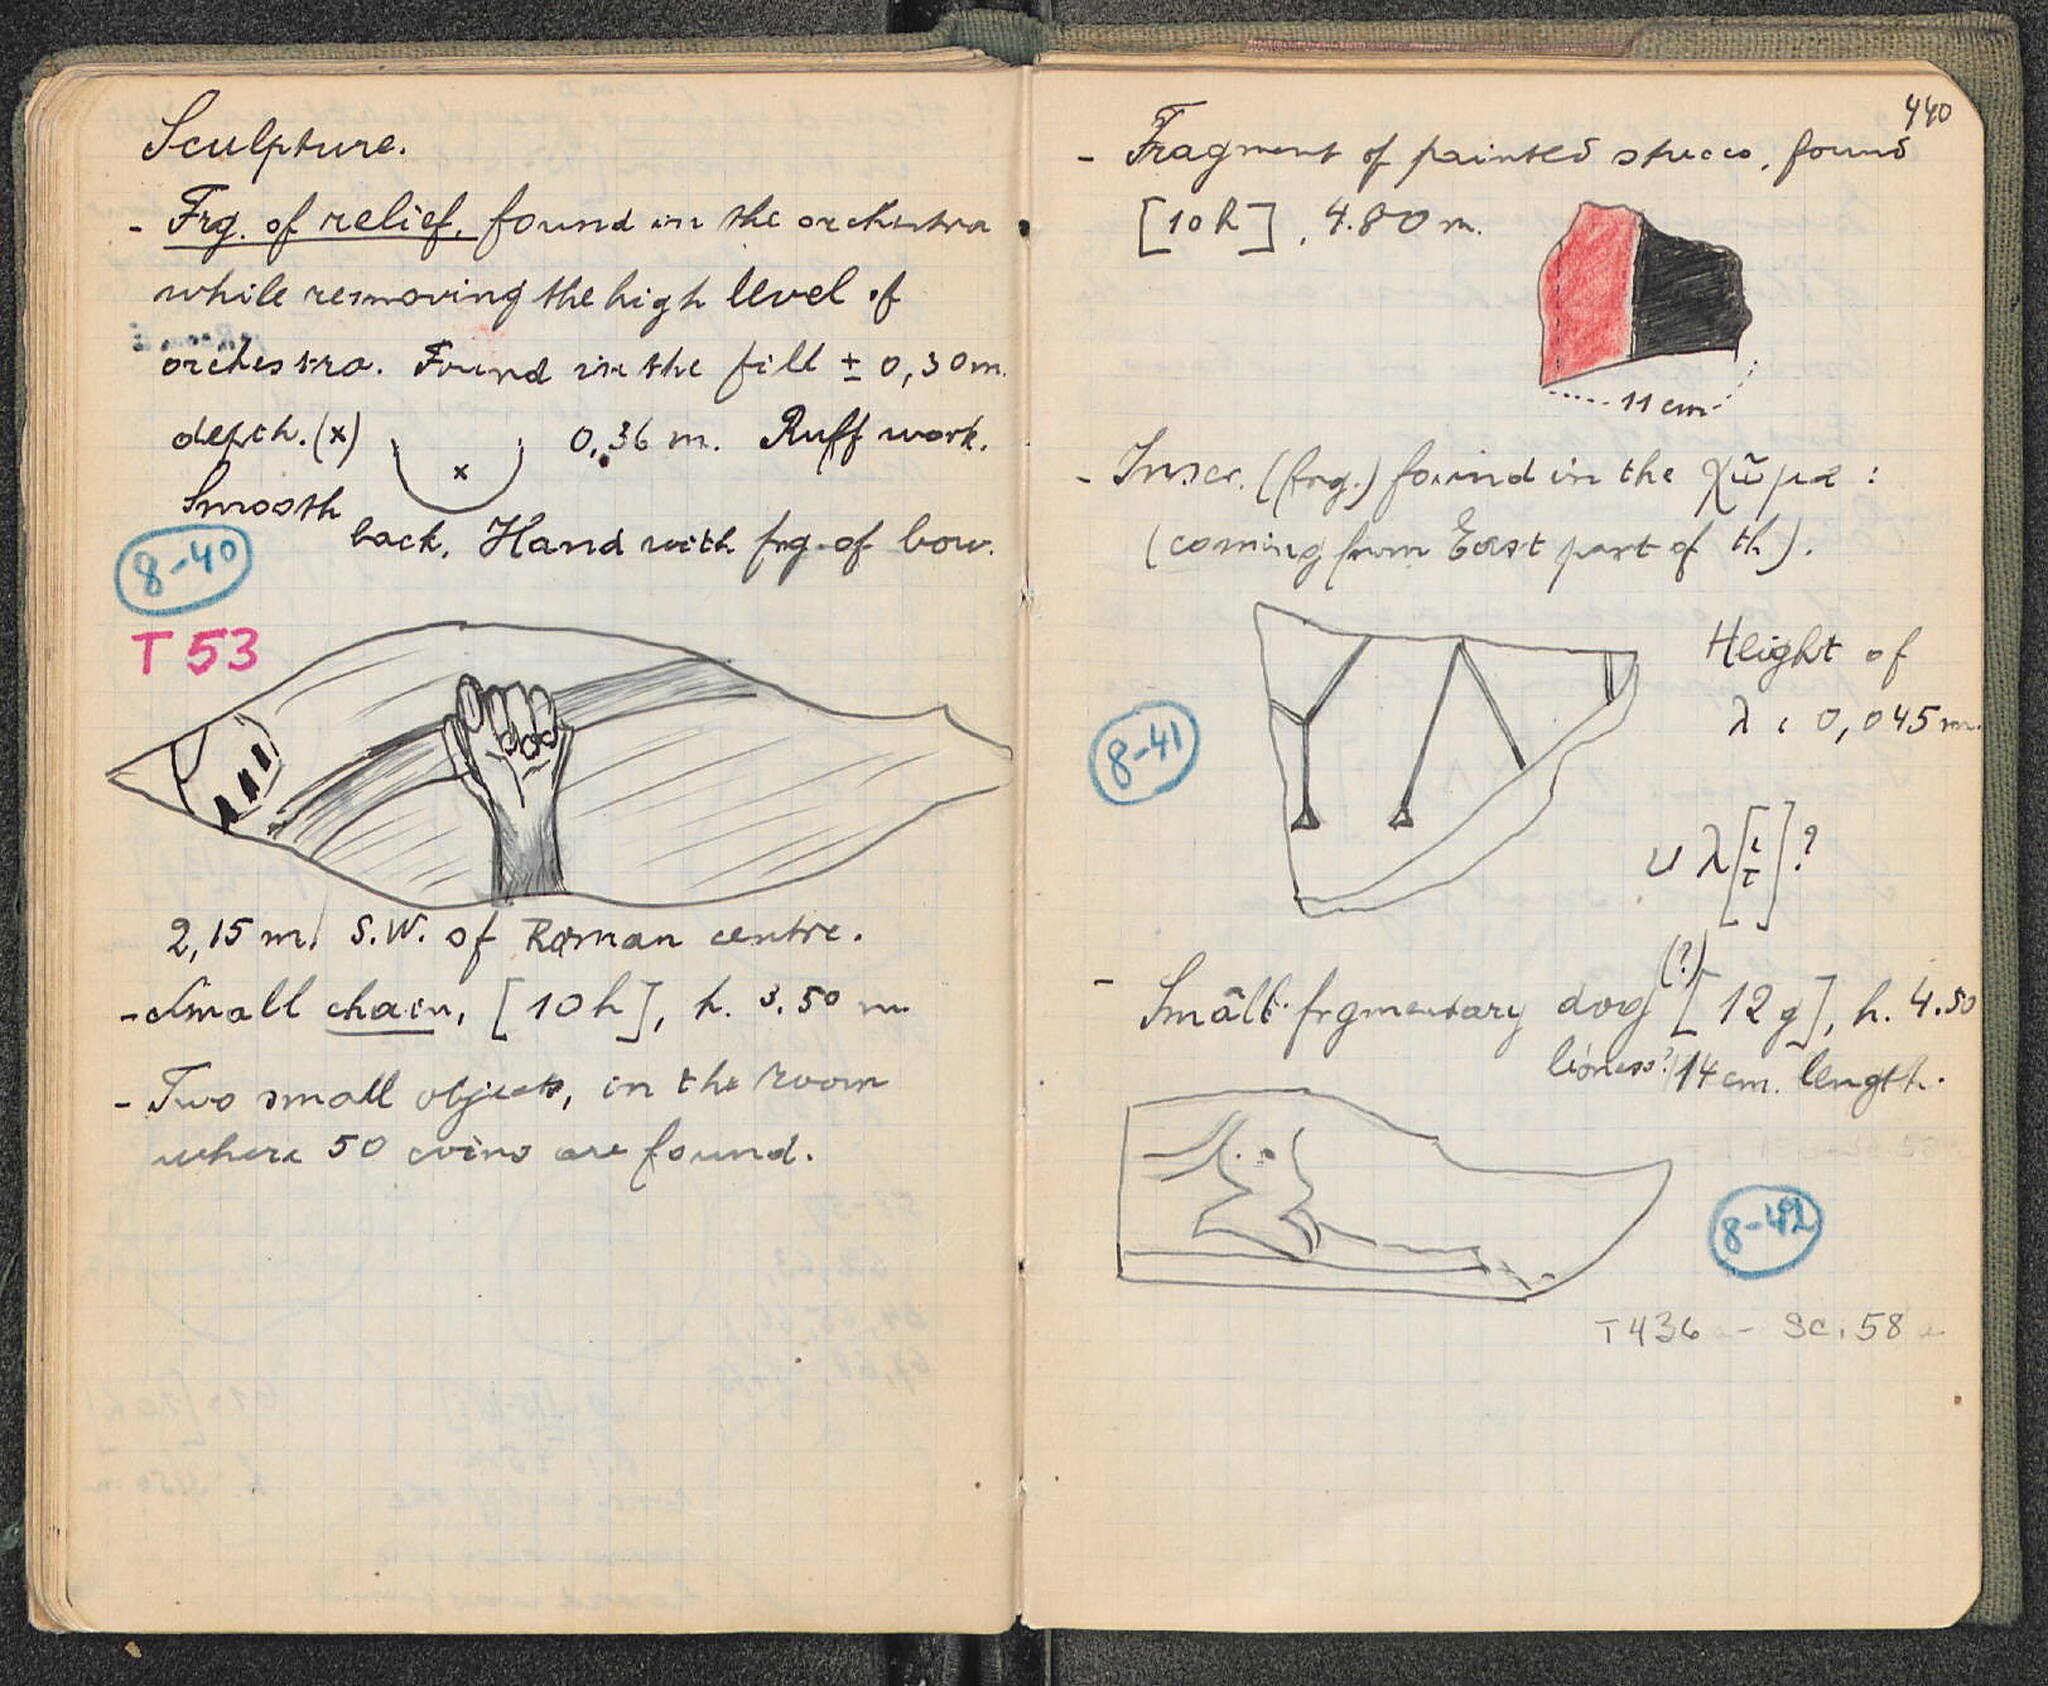 Sculpture.
- Frg. of relief, found in the orchestra
while removing the high level of
orchestra. Found in the fill ± 0,30m.
depth. (x) x 0,36 m. Ruff work.
Smooth
back. Hand with frg. of bow.
8-40
T 53
2,15 m. S.W. of Roman centre.
- Small chain, [10h], h. 3.50 m.
- Two small objects, in the room
where 50 coins are found.
440
- Fragment of painted stucco, found
[10h], 4.80 m.
11 cm
- Inscr. (frg.) found in the χῶμα :
(coming from East part of th).
Height of
λ : 0,045 m.
8-41
υ λ [ι τ] ?
(?)
- Small frgmentary dog [12g], h. 4.50
lioness? 14 cm. length.
8-42
T436 - Sc. 58